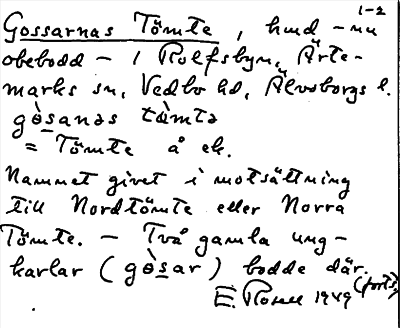 1-2
Gossarnas Tömte, hmd - nu
obebodd - i Rolfsbyn, Ärte-
marks sn, Vedbo hd, Älvsborgs l.
gòsanas tömtə
= Tömte å ek.
Namnet givet i motsättning
till Nordtömte eller Norra
Tömte. - Två gamla ung-
karlar (gòsar) bodde där.
(forts.)
E. Rosell 1949